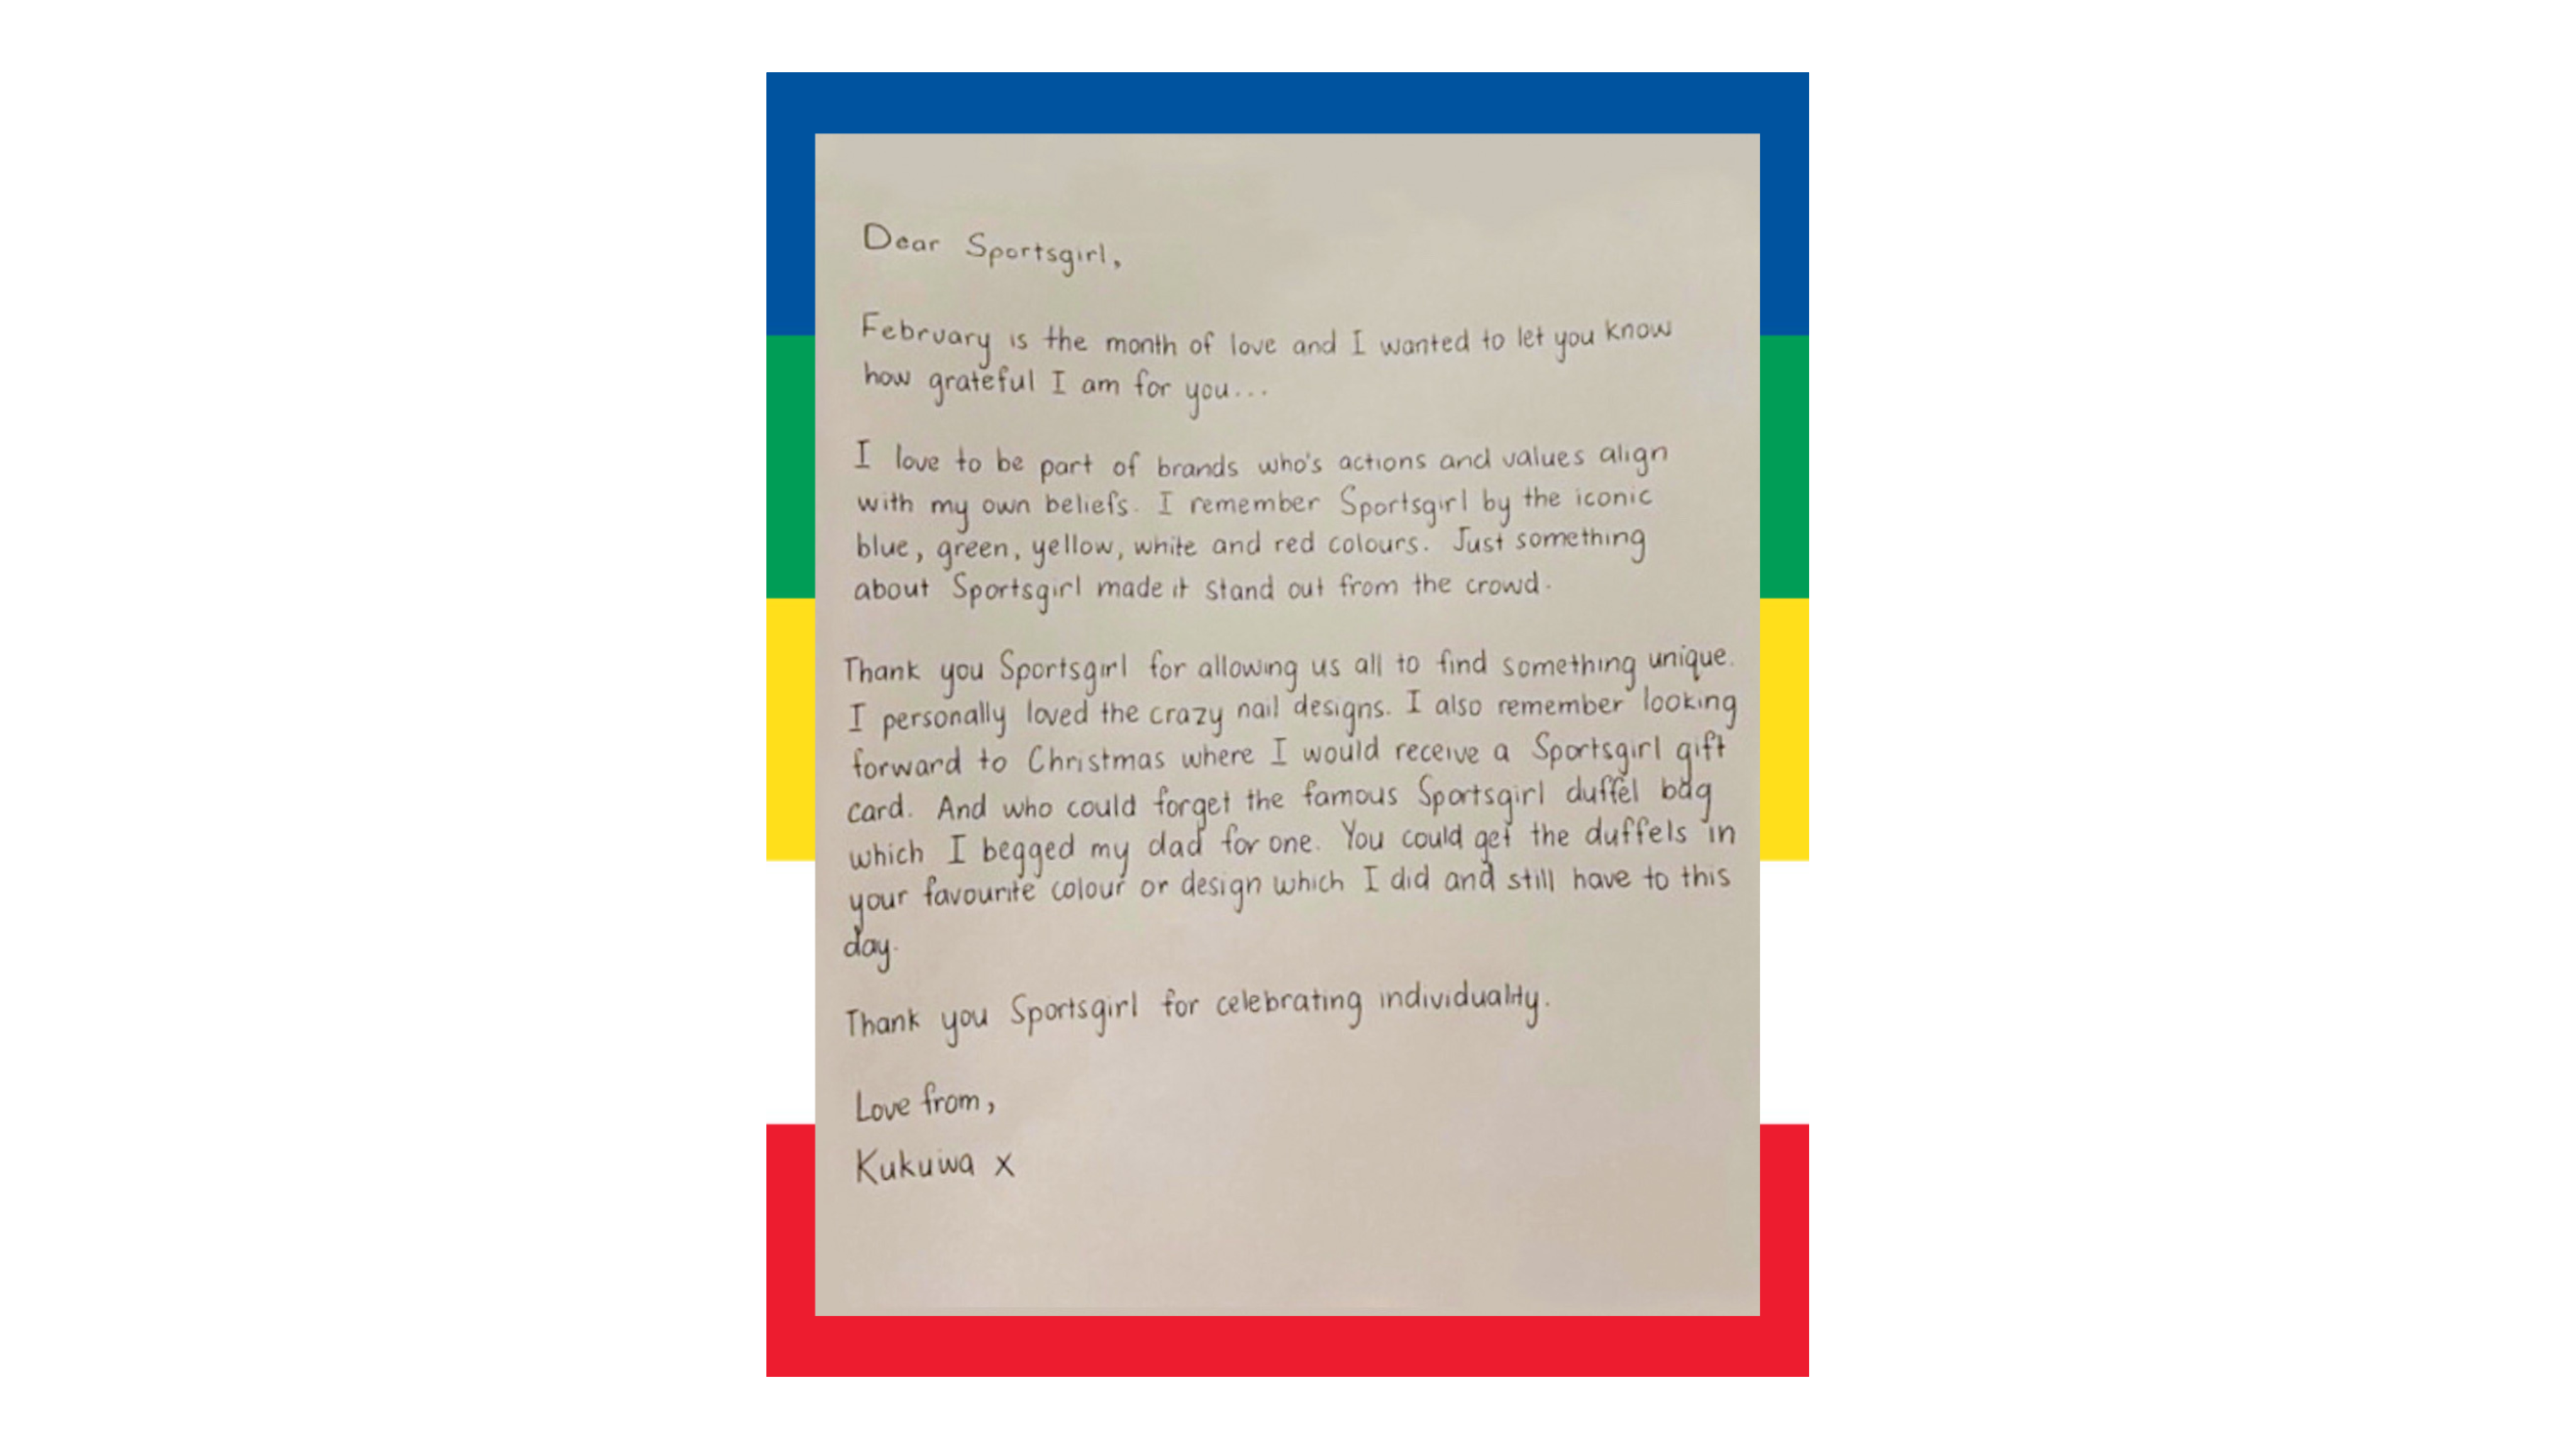 Dear Sportsgirl,
February is the month of love and I wanted to let you know
how grateful I am for you...
I love to be part of brands who's actions and values align
with my own beliefs. I remember Sportsgirl by the iconic
blue, green, yellow, white and red colours. Just something
about Sportsgirl made it stand out from the crowd.
Thank you Sportsgirl for allowing us all to find something unique.
I personally loved the crazy nail designs. I also remember looking
forward to Christmas where I would receive a Sportsgirl gift
card. And who could forget the famous Sportsgirl duffel bag
which I begged my dad for one. You could get the duffels in
your favourite colour or design which I did and still have to this
day.
Thank you Sportsgirl for celebrating individuality.
Love from,
Kukuwa x